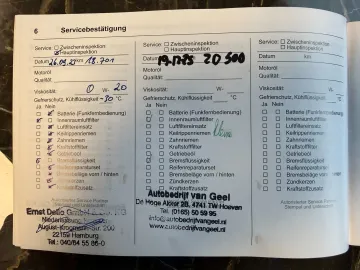 6 Servicebestätigung
Service: Zwischeninspektion
Hauptinspektion
Datum 26.09.23 km 18.701
Motoröl
Qualität:
Viskosität: 0 W- 20
Gefrierschutz, Kühlflüssigkeit -30 °C
Ja Nein
Batterie (Funkfernbedienung)
Innenraumluftfilter
Luftfiltereinsatz
Keilrippenriemen
Zahnriemen
Kraftstofffilter
Getriebeöl
Bremsflüssigkeit
Reifenreparaturset
Bremsbeläge vorn / hinten
Zündkerzen
Kraftstoffzusatz
Autorisierter Service Partner
Ernst Dello GmbH
Niederlassung
22159 Hamburg
Service: Zwischeninspektion
Hauptinspektion
Datum 20 500
Motoröl
Qualität:
Viskosität: W-
Gefrierschutz, Kühlflüssigkeit °C
Ja Nein
Batterie (Funkfernbedienung)
Innenraumluftfilter
Luftfiltereinsatz
Keilrippenriemen
Zahnriemen
Kraftstofffilter
Getriebeöl
Bremsflüssigkeit
Reifenreparaturset
Bremsbeläge vorn / hinten
Zündkerzen
Kraftstoffzusatz
Autobedrijf van Geel
De Hoge Akker 28, 4741 TW-Hoeven
Tel. (0165) 50 59 95
info@autobedrijfvangeel.nl
www.autobedrijfvangeel.nl
Service: Zwischeninspektion
Hauptinspektion
Datum km
Motoröl
Qualität:
Viskosität: W-
Gefrierschutz, Kühlflüssigkeit °C
Ja Nein
Batterie (Funkfernbedienung)
Innenraumluftfilter
Luftfiltereinsatz
Keilrippenriemen
Zahnriemen
Kraftstofffilter
Getriebeöl
Bremsflüssigkeit
Reifenreparaturset
Bremsbeläge vorn / hinten
Zündkerzen
Kraftstoffzusatz
Autorisierter Service Partner
Stempel und Unterschrift